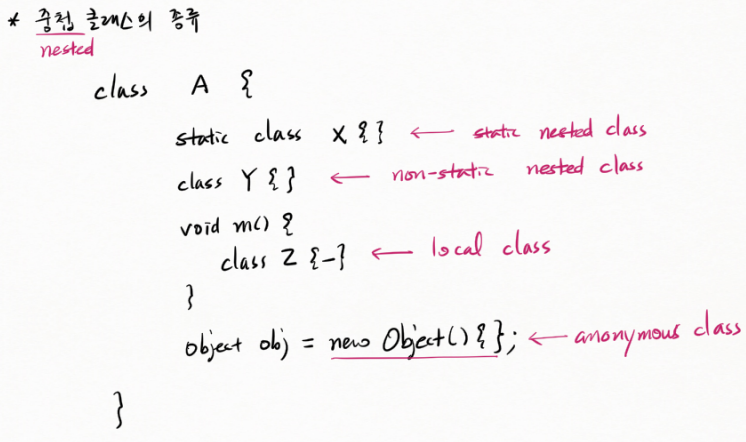 * 중첩 클래스의 종류
nested
class A {
static class X {} ← static nested class
class Y {} ← non-static nested class
void m() {
class Z {-} ← local class
}
Object obj = new Object() {}; ← anonymous class
}